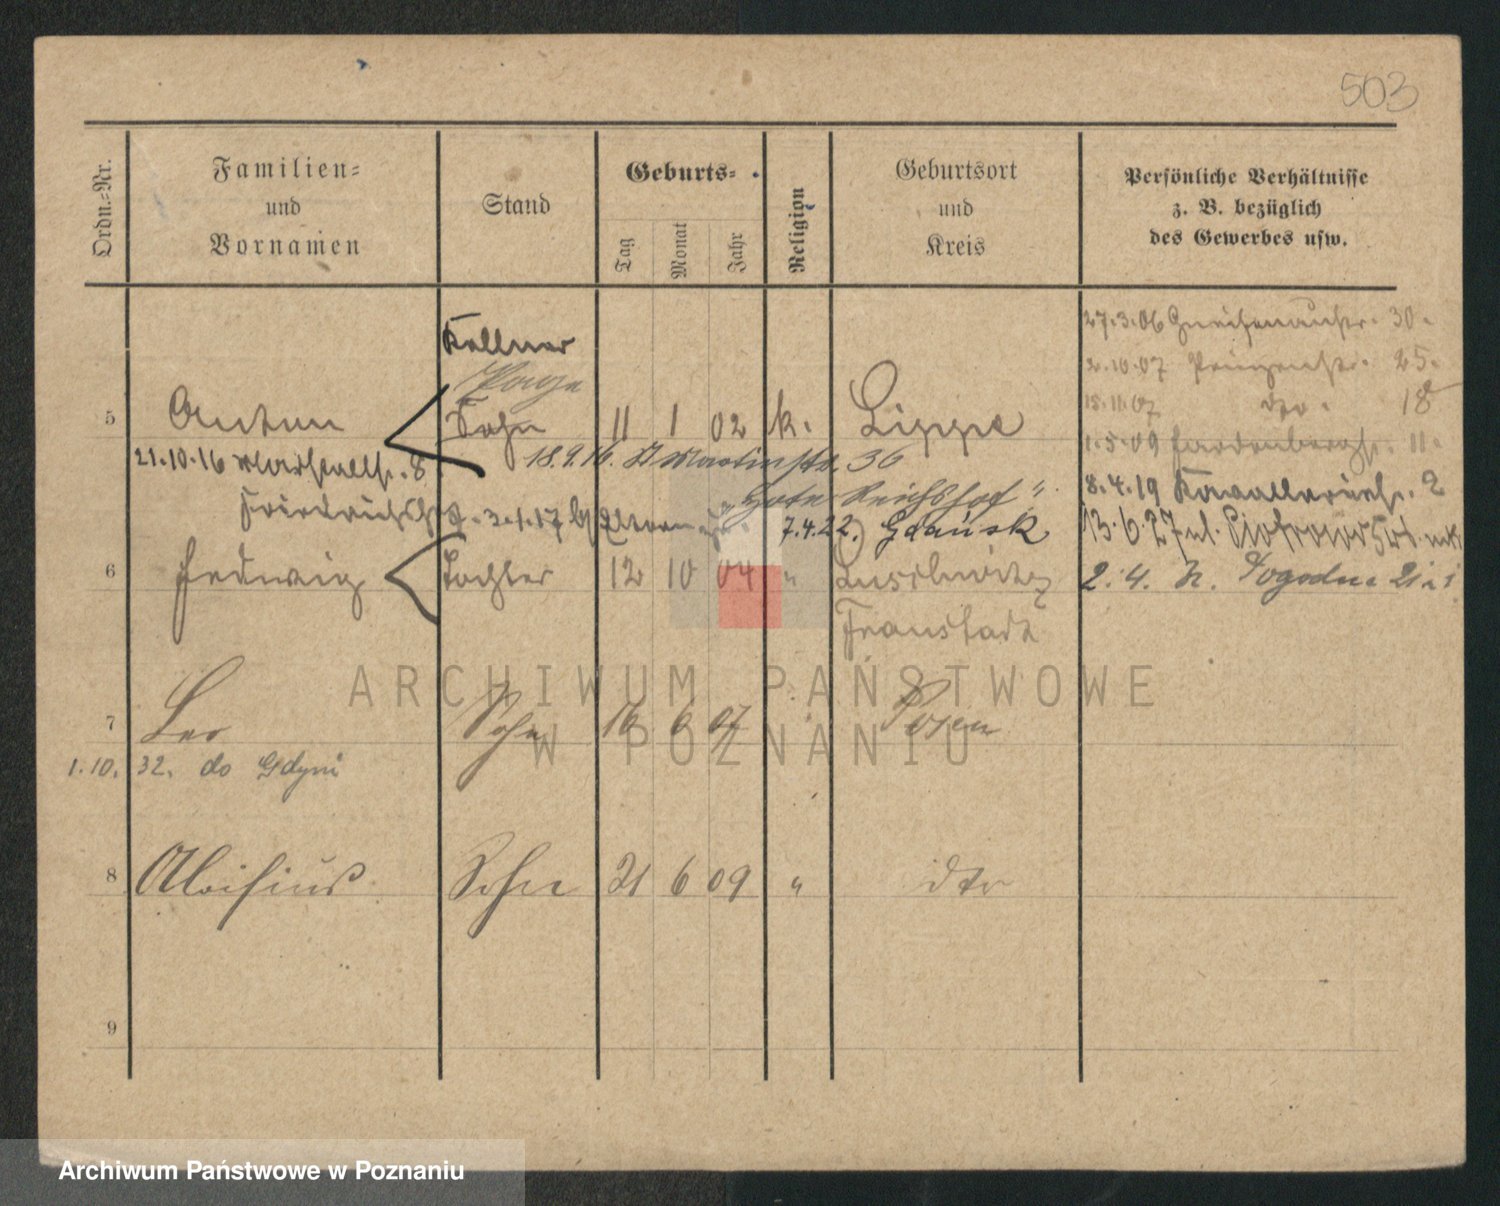 503
Ordn.-Nr.
Familien-
und
Vornamen
Stand
Geburts-
Tag
Monat
Jahr
Religion
Geburtsort
und
Kreis
Persönliche Verhältnisse
z. B. bezüglich
des Gewerbes usw.
27.3.06 Gneisenaustr. 30.
Kellner
2.10.07 Prinzenstr. 25.
Page
15.11.07 dto. 18
5 Anton Sohn 11 1 02 k. Lippe
1.5.09 Hardenbergstr. 11.
21.10.16 8 18.9.16. St Martinstr. 36
8.4.19 2
"Hotel Reichshof"
3.1.17 Eltern 7.4.22. Gdańsk
13.6.27 ul.
6 Hedwig Tochter 12 10 04 "
2.4. Pogodna
Fraustadt
7 Leo Sohn 16 6 07 Posen
1.10.32. do Gdyni
8 Aloisius Sohn 21 6 09 " dto
9
ARCHIWUM PAŃSTWOWE
W POZNANIU
Archiwum Państwowe w Poznaniu